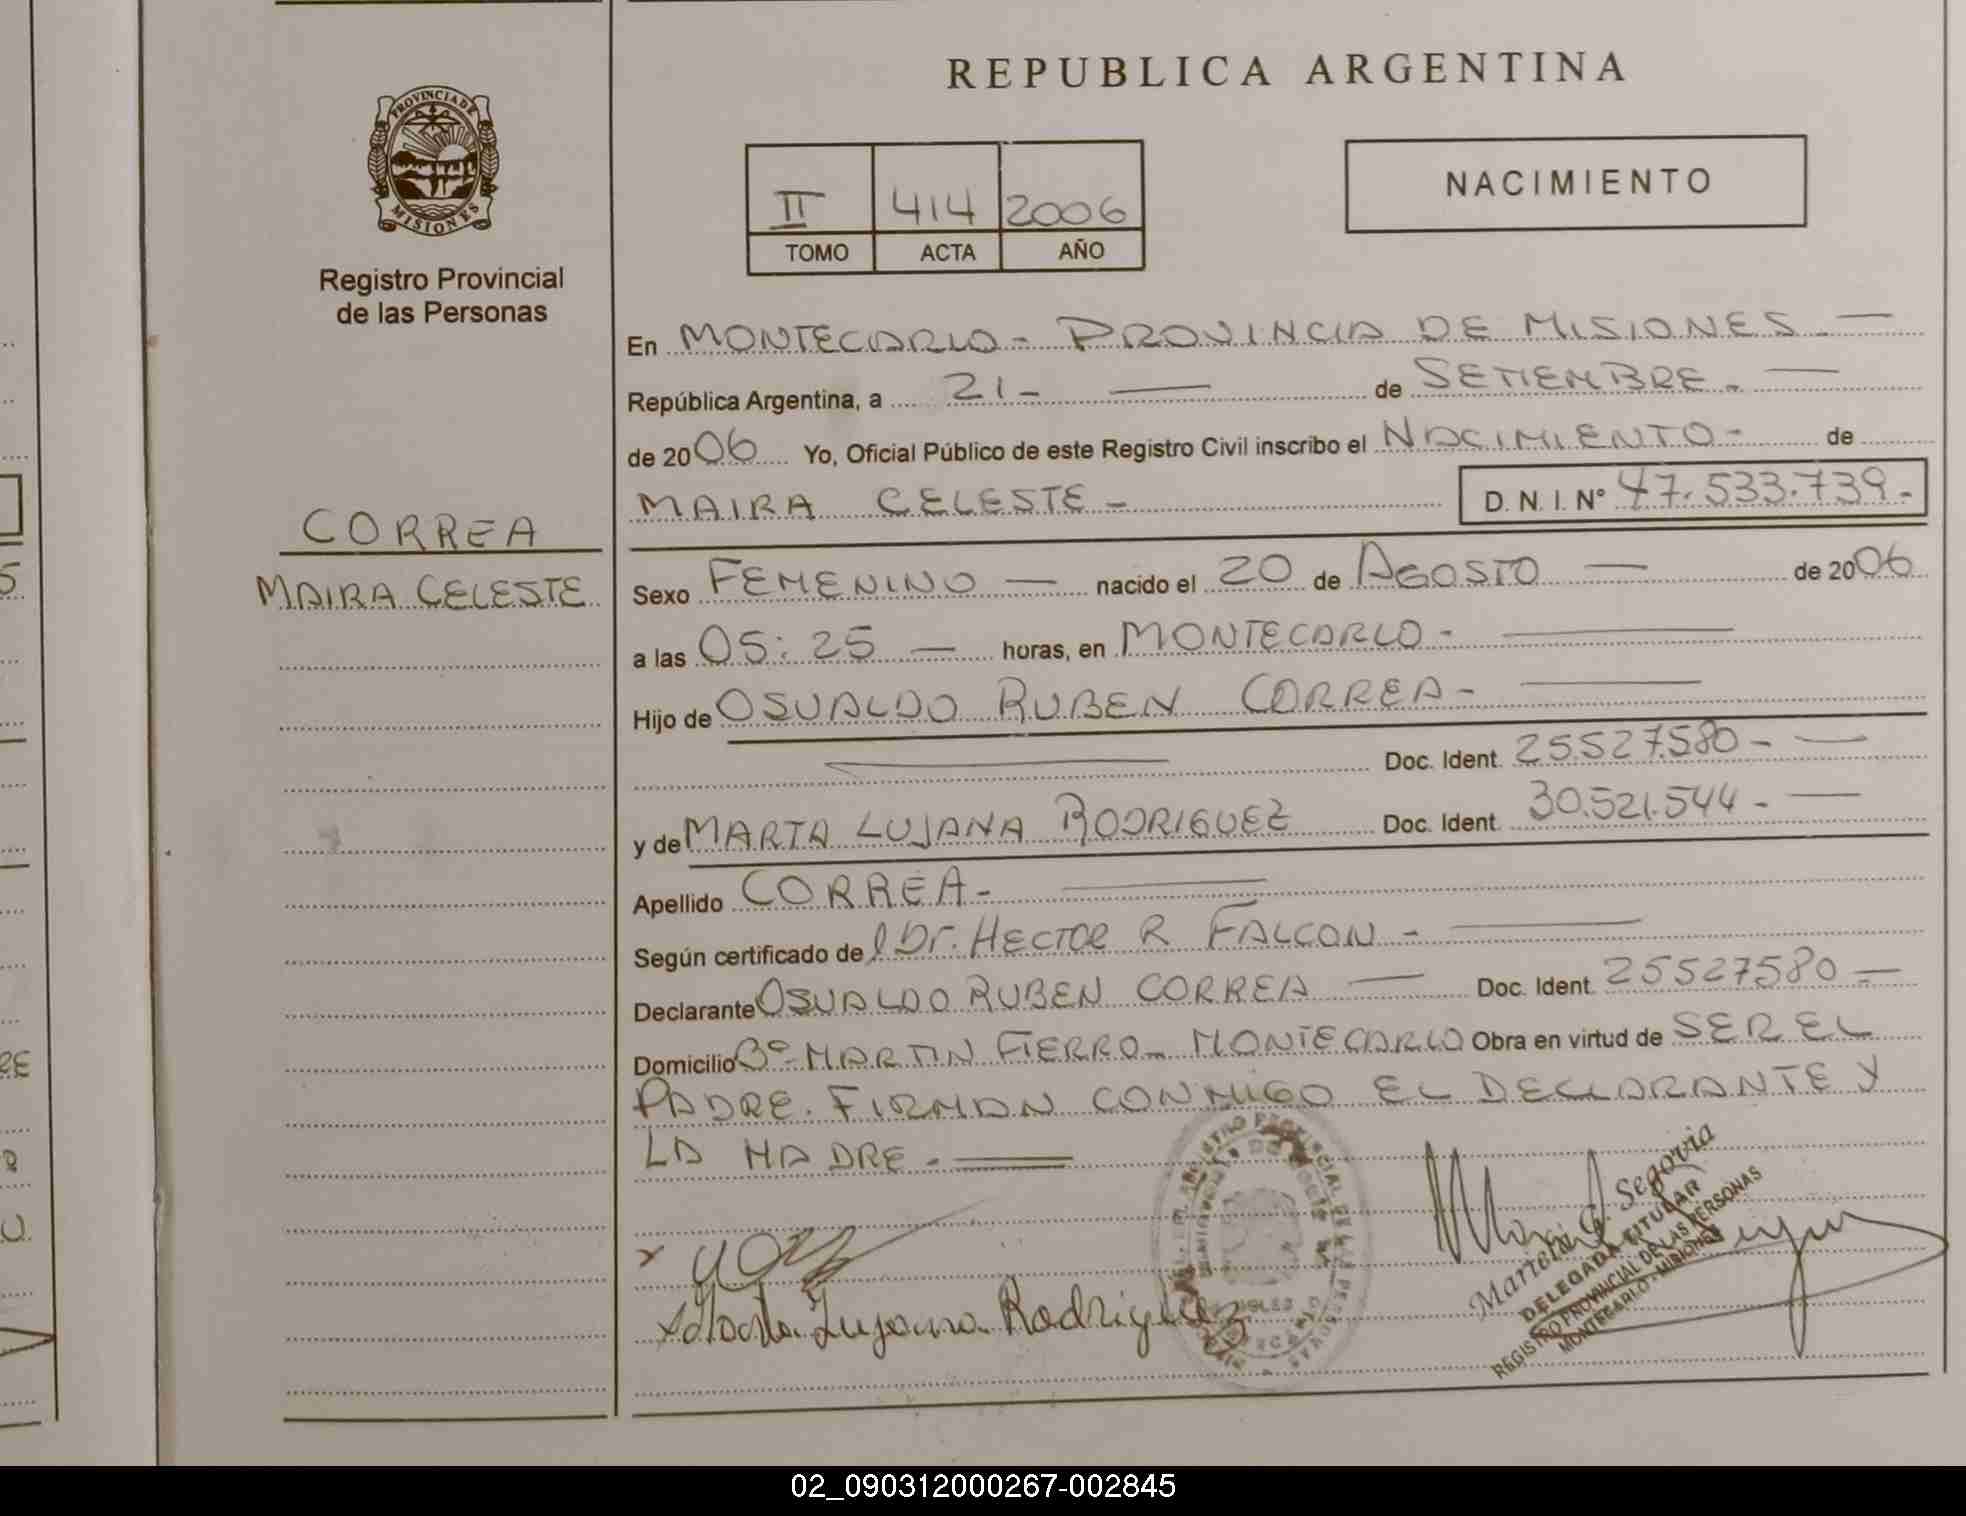 REPUBLICA ARGENTINA
PROVINCIA DE
MISIONES
Registro Provincial
de las Personas
II 414 2006
TOMO ACTA AÑO
NACIMIENTO
En MONTECARLO - PROVINCIA DE MISIONES. —
República Argentina, a 21 - — de SETIEMBRE. —
de 2006 Yo, Oficial Público de este Registro Civil inscribo el NACIMIENTO - de
MAIRA CELESTE - D. N. I. Nº 47.533.739.-
CORREA
MAIRA CELESTE
Sexo FEMENINO — nacido el 20 de AGOSTO — de 2006
a las 05:25 — horas, en MONTECARLO - —
Hijo de OSVALDO RUBEN CORREA - —
Doc. Ident. 25.527.580 - —
y de MARTA LUJANA RODRIGUEZ Doc. Ident. 30.521.544 - —
Apellido CORREA - —
Según certificado de l Dr. HECTOR R FALCON - —
Declarante OSVALDO RUBEN CORREA — Doc. Ident. 25527580 —
Domicilio Bº MARTIN FIERRO - MONTECARLO Obra en virtud de SER EL
PADRE. FIRMAN CONMIGO EL DECLARANTE Y
LA MADRE. —
Marta Lujana Rodriguez
Segovia
DELEGADA TITULAR
REGISTRO PROVINCIAL DE LAS PERSONAS
MONTECARLO - MISIONES
02_090312000267-002845